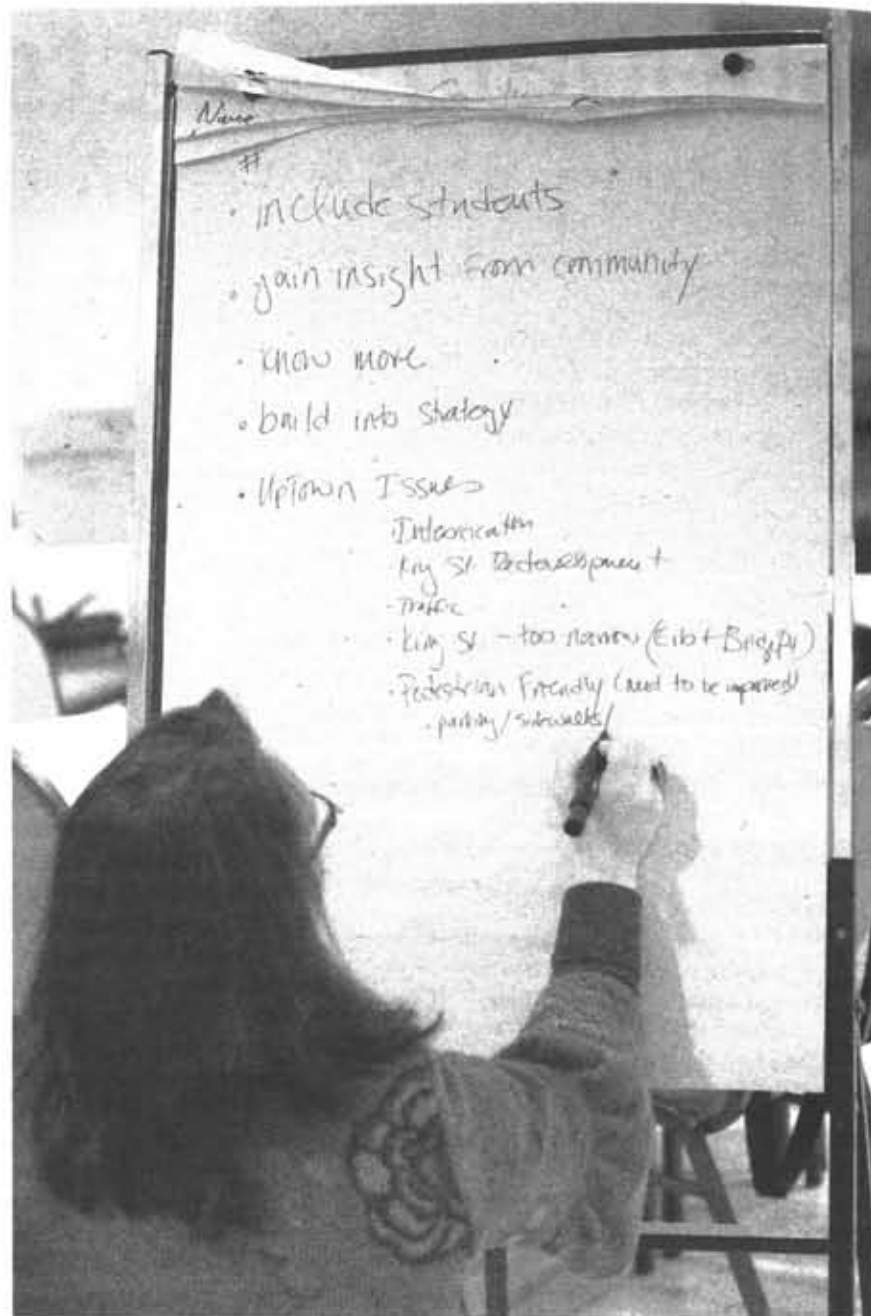 Name
#
· include students
· gain insight from community
· know more
· build into strategy
· Uptown Issues
· Intensification
· King St. Redevelopment
· Traffic
· King St - too narrow (Erb +
· Pedestrian Friendly (need to be improved)
· parking/sidewalks/